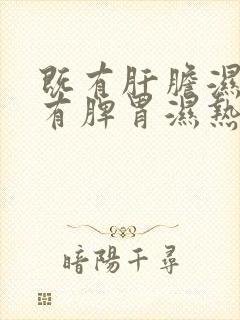 既有肝膽濕
有脾胃濕熱
暗陽千尋